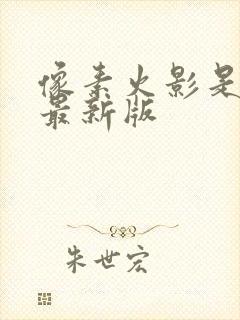 像素火影是
最新版
朱世宏